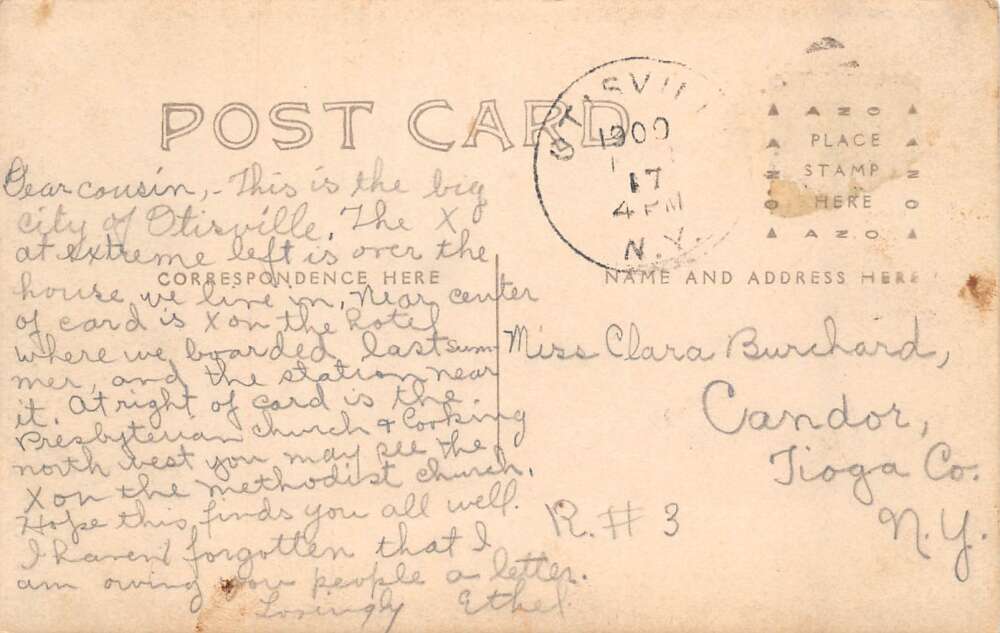 POST CARD
OTISVILL
1909
17
4 PM
N.Y.
AZO
PLACE
STAMP
HERE
AZO
AZO
AZO
CORRESPONDENCE HERE
NAME AND ADDRESS HERE
Dear cousin,- This is the big
city of Otisville. The X
at extreme left is over the
house we live in. Near center
of card is X on the hotel
where we boarded last sum-
mer, and the station near
it. At right of card is the
Presbyterian church & looking
north west you may see the
X on the Methodist church.
Hope this finds you all well.
I haven't forgotten that I
am owing you people a letter.
Lovingly Ethel.
Miss Clara Burchard,
Candor,
Tioga Co.
R.# 3
N.Y.